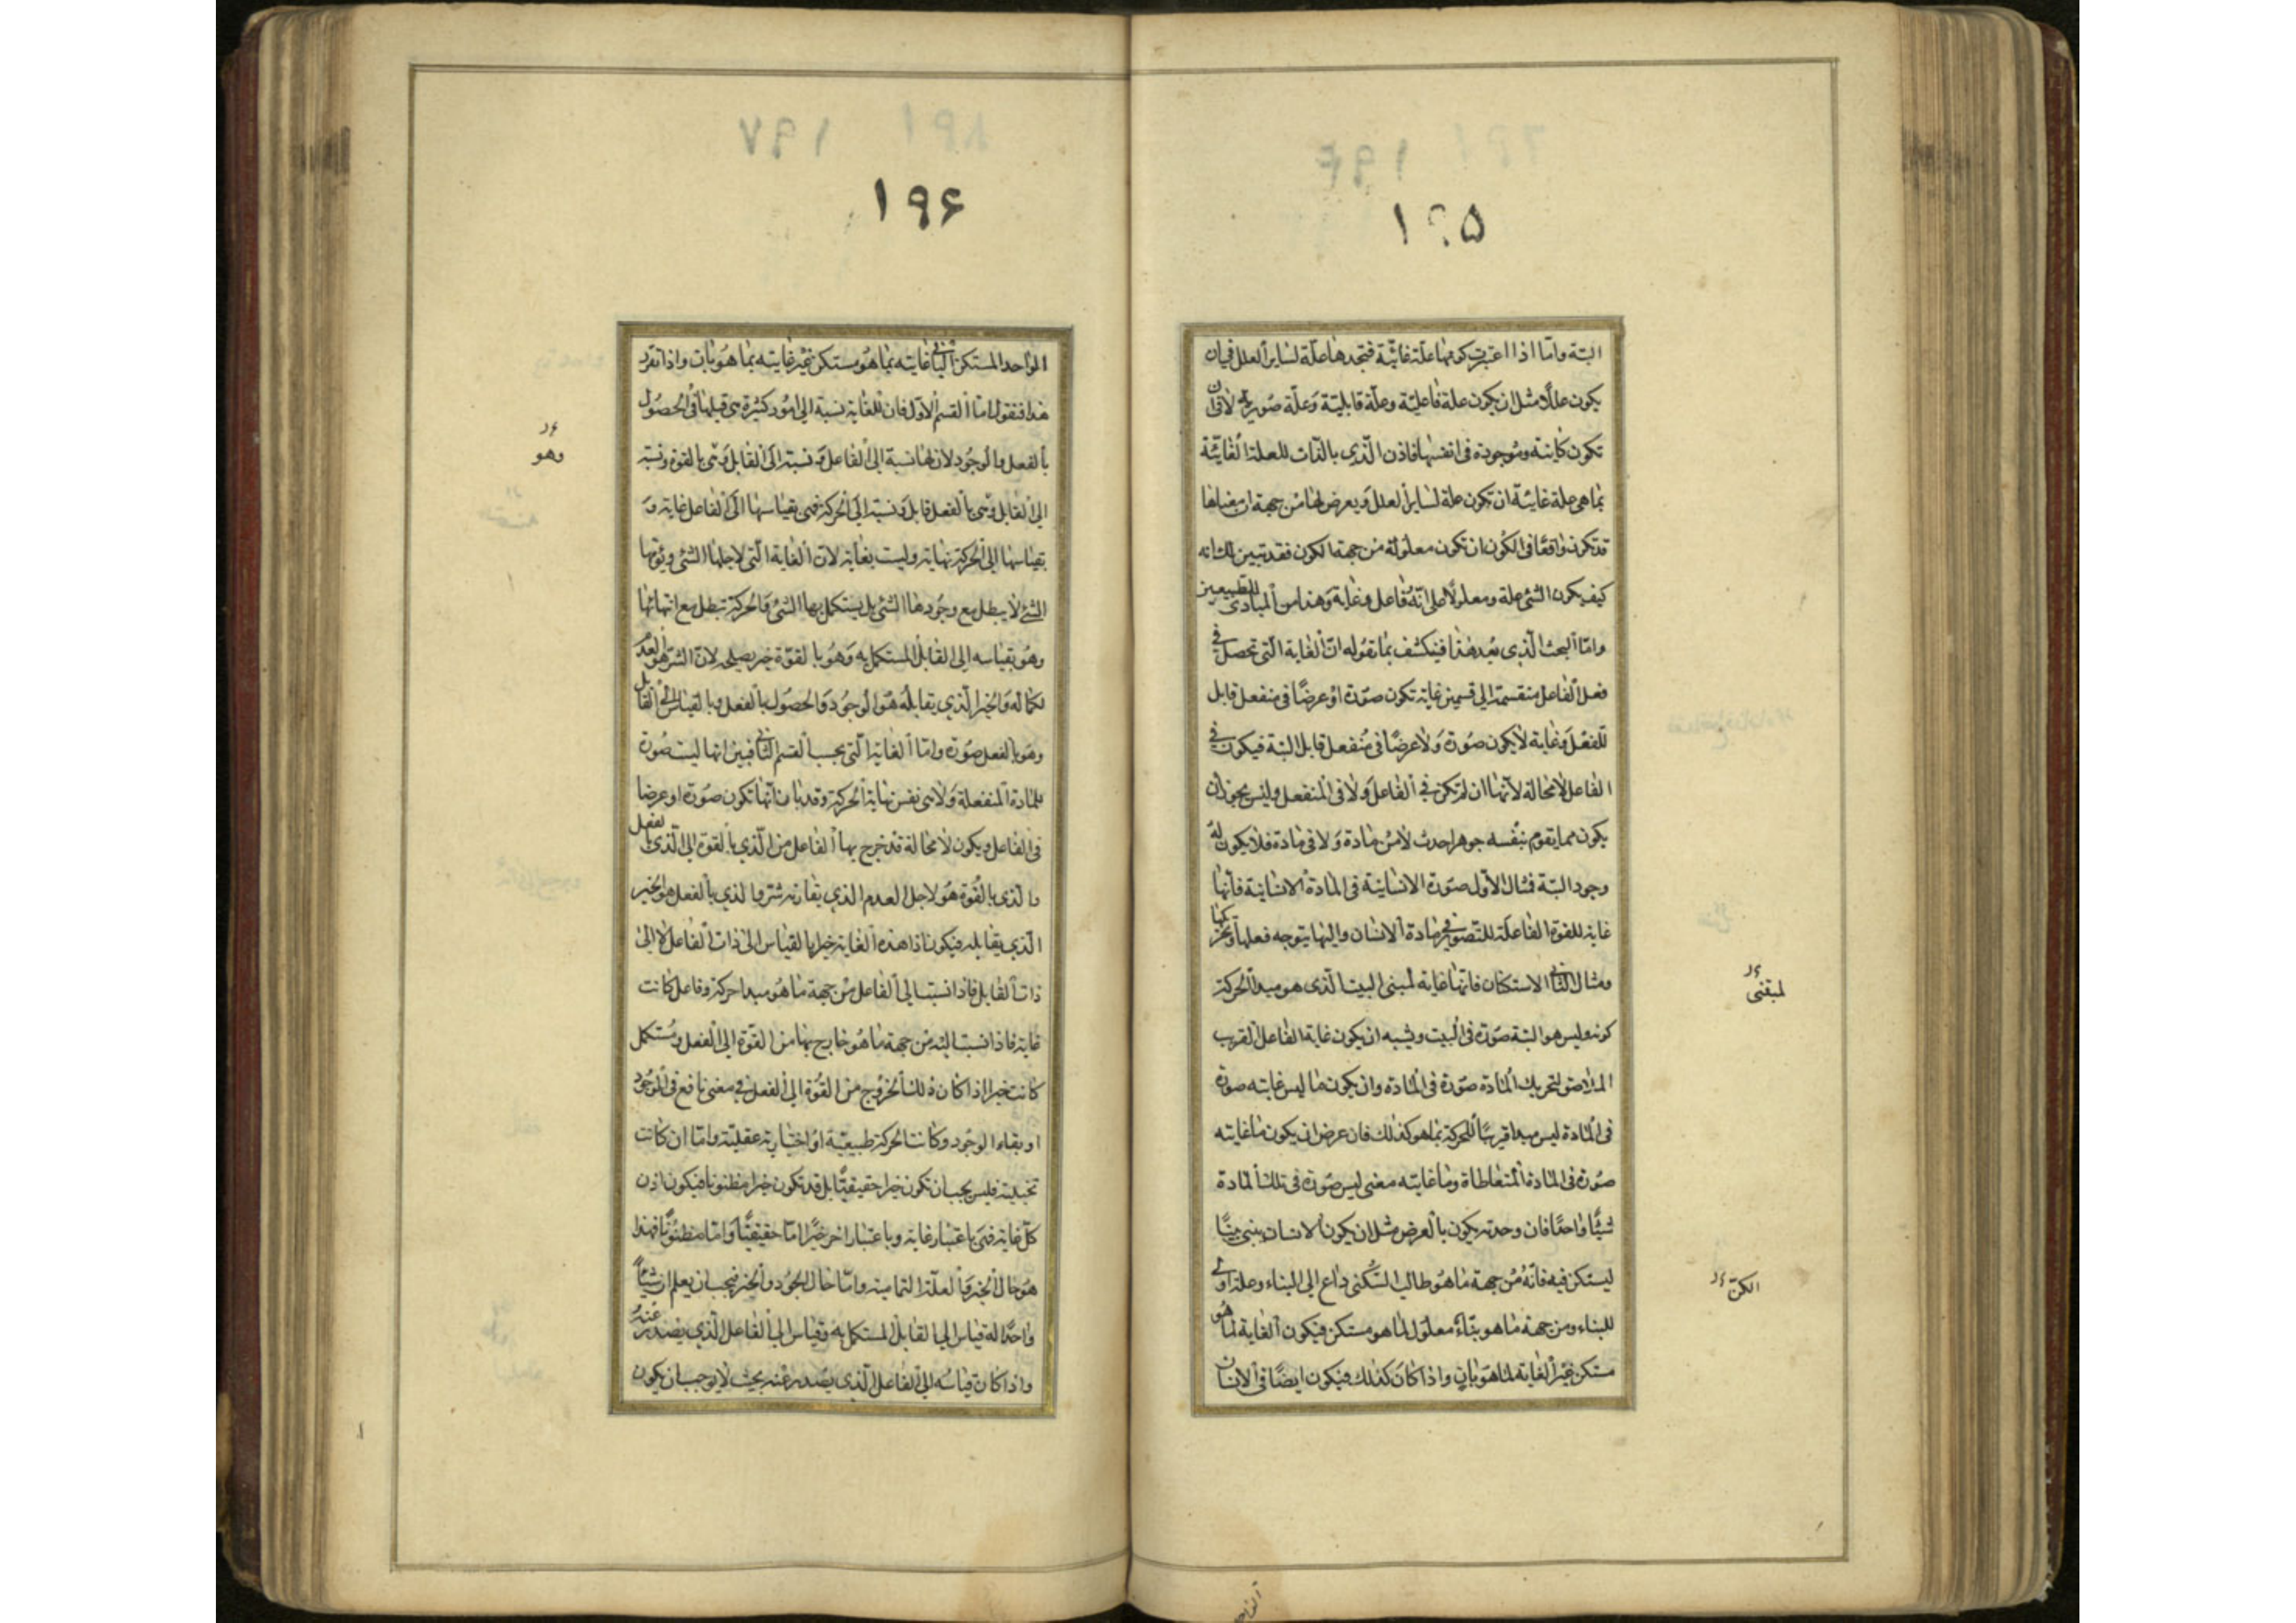 ١٩۵
البتة واما اذا اعتبرت كونها علة غائية فتجدها علة لساير العلل في ان
يكون عللا مثل ان يكون علة فاعلية وعلة قابلية وعلة صورية لا في ان
تكون كاينة وموجودة في انفسها فاذن الذي بالذات للعلة الغائية
بما هي علة غائية ان تكون علة لساير العلل ويعرض لها من جهة ان معناها
قد تكون واقعا في الكون ان تكون معلولة من جهة الكون فقد تبين لك انه
كيف يكون الشئ علة ومعلولا على انه فاعل وغاية وهذا من المبادى للطبيعيين
واما البحث الذي بعد هذا فينكشف بما نقوله ان الغاية التي تحصل في
فعل الفاعل منقسمة الى قسمين غاية تكون صورة او عرضا في منفعل قابل
للفعل وغاية لا يكون صورة ولا عرضا في منفعل قابل البتة فيكون في
الفاعل لا محالة لانها ان لم تكن في الفاعل ولا في المنفعل وليس يجوز ان
يكون مما يقوم بنفسه جوهرا حدث لا من مادة ولا في مادة فلا يكون له
وجود البتة فمثال الاول صورة الانسانية في المادة الانسانية فانها
غاية للقوة الفاعلة للتصوير في مادة الانسان واليها يتوجه فعلها وتحريكها
ومثال الثاني الاستكنان فانها غاية لمبنى البيت الذي هو مبدا لحركة
كونه وليس هو البتة صورة في البيت ويشبه ان يكون غاية الفاعل القريب
الملاصق لتحريك المادة صورة في المادة وان يكون ما ليس غايته صورة
في المادة ليس مبدا قريبا للحركة بما هو كذلك فان عرض ان يكون ما غايته
صورة في المادة المتعاطاة وما غايته معنى ليس صورة في تلك المادة
شيئا واحدا فان وحدته يكون بالعرض مثل ان يكون الانسان يبنى بيتا
ليستكن فيه فانه من جهة ما هو طالب السكنى داع الى البناء وعلة اولى
للبناء ومن جهة ما هو بناء معلول لما هو مستكن فيكون الغاية لما هو
مستكن غير الغاية لما هو بان واذا كان كذلك فيكون ايضا في الانسان
لمبتغى
الكن
١٩۶
الواحد المستكن الباني غايته بما هو مستكن غير غايته بما هو بان واذا تقرر
هذا فنقول اما القسم الاول فان للغاية نسبة الى امور كثيرة هي قبلها في الحصول
بالفعل والوجود لان لها نسبة الى الفاعل ونسبة الى القابل وهي بالقوة ونسبة
الى القابل وهي بالفعل قابل ونسبة الى الحركة فهي بقياسها الى الفاعل غاية و
بقياسها الى الحركة نهاية وليست بغاية لان الغاية التي لاجلها الشئ ويؤمها
الشئ لا يبطل مع وجودها الشئ بل يستكمل بها الشئ والحركة تبطل مع انتهائها
وهو بقياسه الى القابل المستكمل به وهو بالقوة خير يصلحه لان الشر هو العدم
لكماله والخير الذي يقابله هو الوجود والحصول بالفعل وبالقياس الى القابل
وهو بالفعل صورة واما الغاية التي بحسب القسم الثاني فبين انها ليست صورة
للمادة المنفعلة ولا هي نفس نهاية الحركة وقد بان انها تكون صورة او عرضا
في الفاعل ويكون لا محالة قد خرج بها الفاعل من الذي بالقوة الى الذي بالفعل
والذي بالقوة هو لاجل العدم الذي يقارنه شر والذي بالفعل هو الخير
الذي يقابله فيكون اذا هذه الغاية خيرا بالقياس الى ذات الفاعل لا الى
ذات القابل فاذا نسبت الى الفاعل من جهة ما هو مبدا حركة وفاعل كانت
غاية فاذا نسبت اليه من جهة ما هو خارج بها من القوة الى الفعل ومستكمل
كانت خيرا اذا كان ذلك الخروج من القوة الى الفعل في معنى نافع في الوجود
او بقاء الوجود وكانت الحركة طبيعية او اختيارية عقلية واما ان كانت
تخيلية فليس يجب ان تكون خيرا حقيقيا بل قد تكون خيرا مظنونا فيكون اذن
كل غاية فهي باعتبار غاية وباعتبار اخر خيرا اما حقيقيا واما مظنونا فهذا
هو حال الخير والعلة التمامية واما حال الجود والخير فيجب ان يعلم ان شيئا
واحدا له قياس الى القابل المستكمل به وقياس الى الفاعل الذي يصدر عنه
واذا كان قياسه الى الفاعل الذي يصدر عنه بحيث لا يوجب ان يكون
وهو